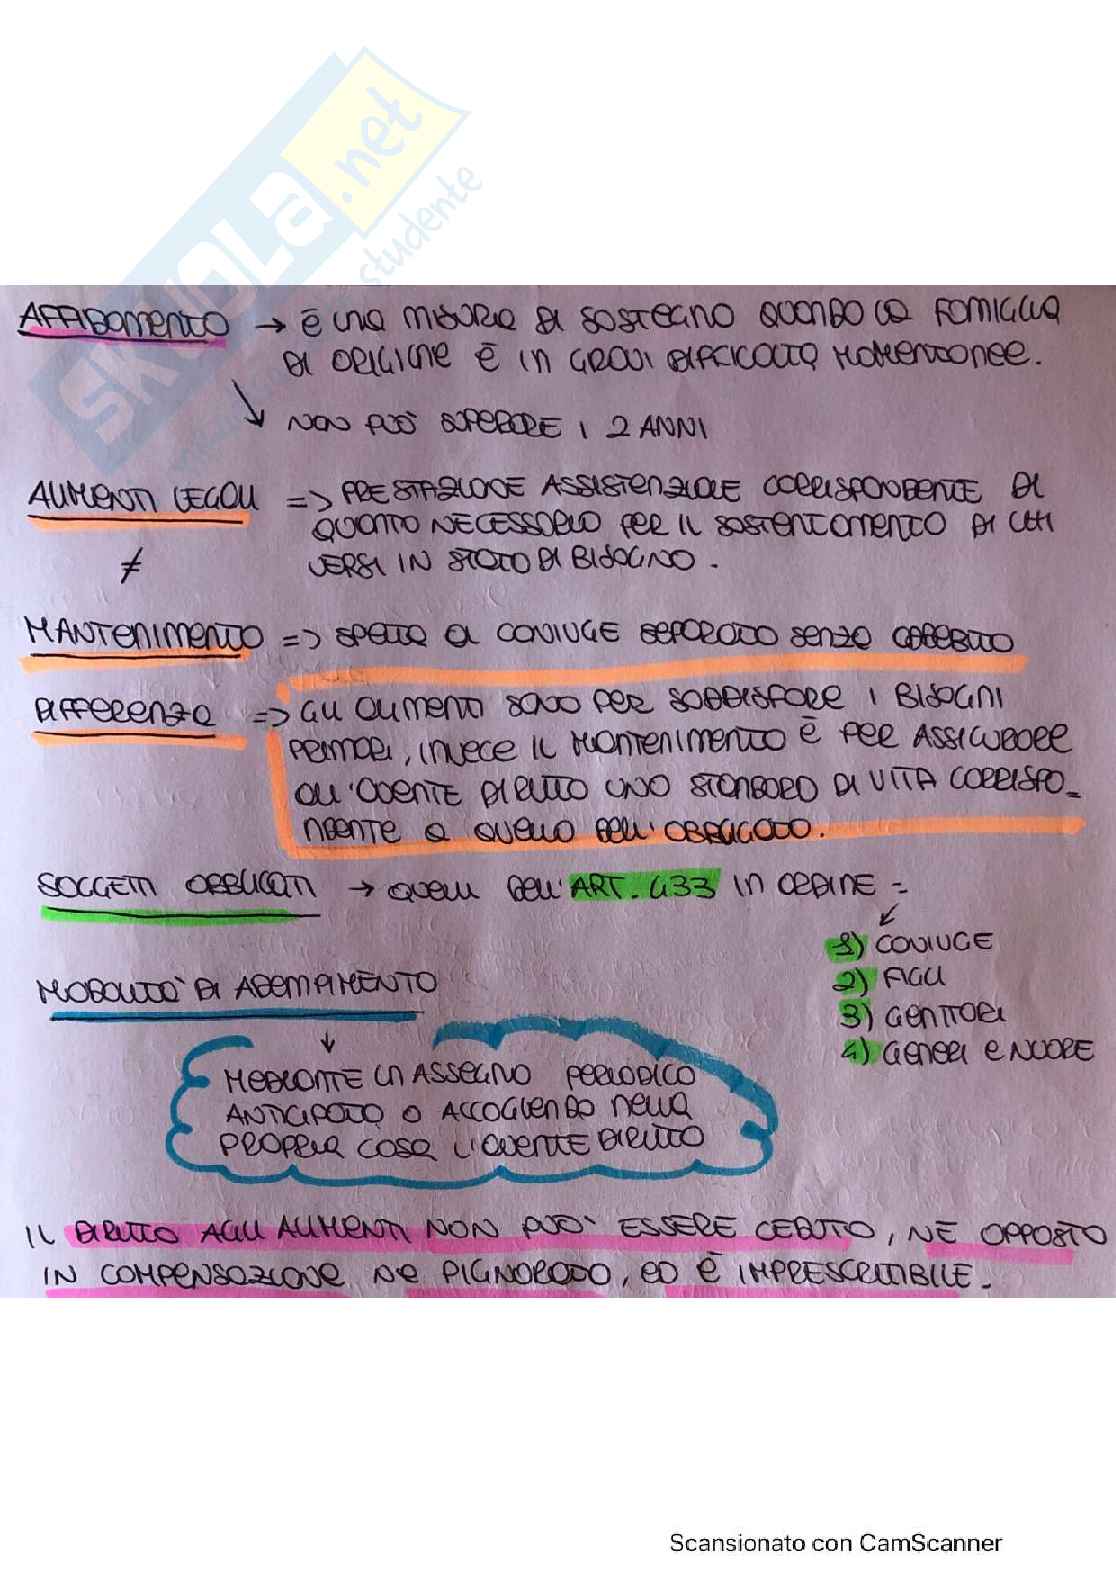 SKUOLA.net
studente
AFFIDAMENTO → È UNA MISURA DI SOSTEGNO QUANDO LA FAMIGLIA
DI ORIGINE È IN GRAVI DIFFICOLTÀ MOMENTANEE.
NON PUÒ SUPERARE I 2 ANNI
ALIMENTI LEGALI => PRESTAZIONE ASSISTENZIALE CORRISPONDENTE DI
QUANTO NECESSARIO PER IL SOSTENTAMENTO DI CHI
≠ VERSI IN STATO DI BISOGNO.
MANTENIMENTO => SPETTA AL CONIUGE SEPARATO SENZA ADDEBITO
DIFFERENZA => GLI ALIMENTI SONO PER SODDISFARE I BISOGNI
PRIMARI, INVECE IL MANTENIMENTO È PER ASSICURARE
ALL'AVENTE DIRITTO UNO STANDARD DI VITA CORRISPO_
NDENTE A QUELLO DELL'OBBLIGATO.
SOGGETTI OBBLIGATI → QUELLI DELL'ART. 433 IN ORDINE =
1) CONIUGE
2) FIGLI
3) GENITORI
4) GENERI E NUORE
MODALITÀ DI ADEMPIMENTO
↓
MEDIANTE UN ASSEGNO PERIODICO
ANTICIPATO O ACCOGLIENDO NELLA
PROPRIA CASA L'AVENTE DIRITTO
IL DIRITTO AGLI ALIMENTI NON PUÒ ESSERE CEDUTO, NÈ OPPOSTO
IN COMPENSAZIONE NE PIGNORATO, ED È IMPRESCRITTIBILE.
Scansionato con CamScanner